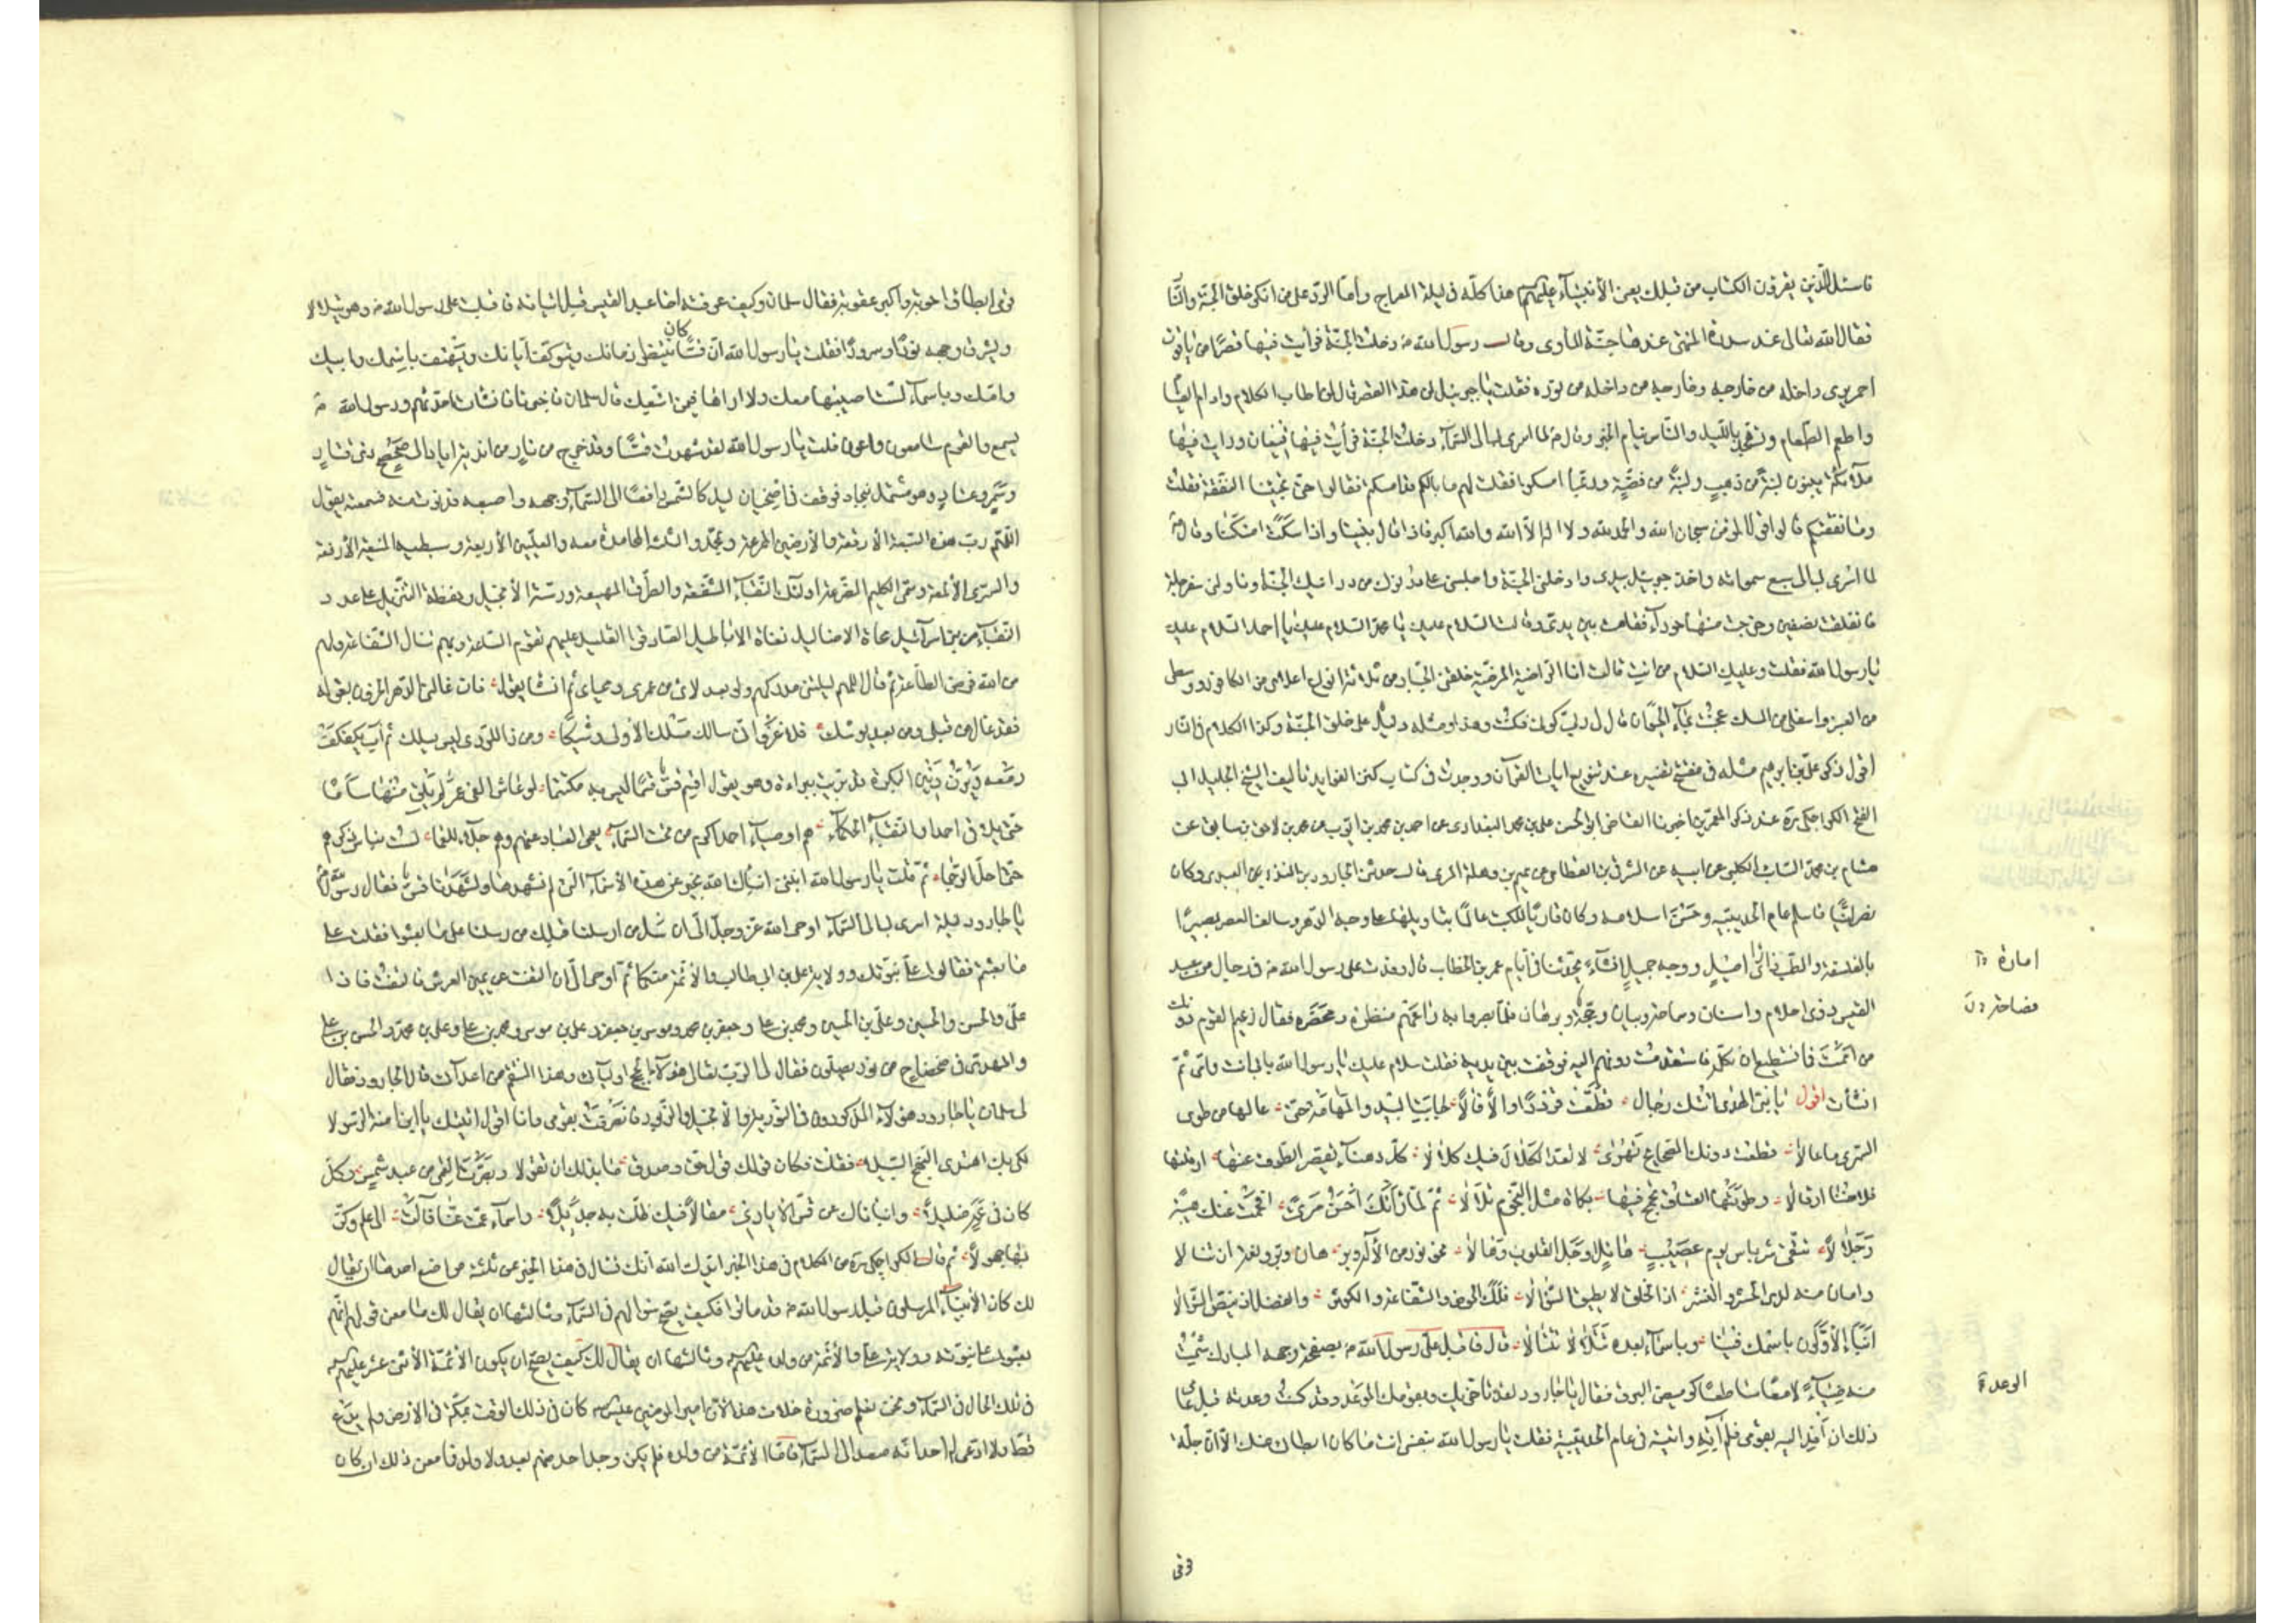 فاسئل الذين يقرؤن الكتاب من قبلك يعنى الأنبياء عليهم هذا كله فى ليلة المعراج وأما الرد على من انكر خلق الجنة والنا
فقال الله تعالى عند سدرة المنتهى عندها جنة المأوى وقال رسول الله ص دخلت الجنة فرأيت فيها قصرًا من ياقوت
احمر يرى داخله من خارجه وخارجه من داخله من نوره فقلت يا جبرئيل لمن هذا القصر قال لمن اطاب الكلام وادام الصيا
واطعم الطعام وتهجد بالليل والناس نيام الخبر وقال ص لما اسرى بى الى السماء دخلت الجنة فرأيت فيها قيعان ورايت فيها
ملائكة يبنون لبنة من ذهب ولبنة من فضة وربما امسكوا فقلت لهم ما بالكم قد امسكتم فقالوا حتى تجيئنا النفقة فقلت
وما نفقتكم قالوا قول المؤمن سبحان الله والحمد لله ولا اله الا الله والله اكبر فاذا قال بنينا واذا سكت امسكنا وقال ص
لما اسرى بى الى سبع سمواته واخذ جبرئيل بيدى وادخلنى الجنة واجلسنى على درنوك من درانيك الجنة وناولنى سفرجلة
فانفلقت نصفين وخرجت منها حوراء فقامت بين يدى وقالت السلام عليك يا محمد السلام عليك يا احمد السلام عليك
يا رسول الله فقلت وعليك السلام من انت قالت انا الراضية المرضية خلقنى الجبار من ثلاثة انواع اعلاى من الكافور ووسطى
من العنبر واسفلى من المسك عجنت بماء الحيوان قال لى ربى كونى فكنت وهذا ومثله دليل على خلق الجنة وكذا الكلام فى النار
اقول ذكر على بن ابرهيم مثله فى مفتتح تفسيره عند تنويع ايات القرآن ووجدت فى كتاب كنز الفوايد تأليف الشيخ الجليل ابى
الفتح الكراجكى ره عند ذكر المعمرين اخبرنا القاضى ابو الحسن على بن محمد البغدادى عن احمد بن محمد بن ايوب عن محمد بن لاحق بن سابق عن
هشام بن محمد السائب الكلبى عن ابيه عن الشرقى بن القطامى عن تميم بن وهلة المرى قال حدثنى الجارود بن المنذر العبدى وكان
نصرانيًا فاسلم عام الحديبية وحسن اسلامه وكان قاريًا للكتب عالمًا بتاويلها على وجه الدهر وسالف العصر بصيرًا
بالفلسفة والطب ذا رأى اصيل ووجه جميل انشاء يحدثنا فى أيام عمر بن الخطاب قال وفدت على رسول الله ص فى رجال من عبد
امارة
القيس ذوى احلام واسنان وسماحة وبيان وحجة وبرهان فلما بصروا به راعهم منظره ومحضره فقال زعيم القوم دونك
فصاحة
من اممت فما نستطيع ان نكلمه فاستقدمت دونهم اليه فوقفت بين يديه فقلت سلام عليك يا رسول الله بابى انت وامى ثم
انشأت اقول يا نبى الهدى اتتك رجال قطعت فدفدًا وآلا فآلا جابت البيد والمهامه حتى غالها من طوى
السرى ما غالا قطعت دونك الصحاصح تهوى لا تعد الكلال فيك كلالا كل دهناء يقصر الطرف عنها ارقلتها
قلاصنا ارقالا وطوتها العتاق تجمح فيها بكماة مثل النجوم تلالا ثم لما رأتك احسن مرئ افحمت عنك هيبة
وجلالا تتقى شر باس يوم عصيب هائل اوجل القلوب وهالا نحو نور من الاله وبرهان وبر ونعمة ان تنالا
وامان منه لدى الحشر والنشر اذ الخلق لا يطيق السؤالا فلك الحوض والشفاعة والكوثر والفضل اذ ينص السؤالا
انبأ الأولون باسمك فينا وباسماء بعده تتلالا تتالا قال فاقبل على رسول الله ص بصفحة وجهه المبارك شمت
منه ضياء لامعًا ساطعًا كوميض البرق فقال يا جارود لقد تاخر بك وبقومك الموعد وقد كنت وعدته قبل عامى
الوعدة
ذلك ان أفد اليه بقومى فلم آته واتيته فى عام الحديبية فقلت يا رسول الله بنفسى انت ما كان ابطائى عنك الا ان جلة
قومى
قومى ابطاؤا عن اجابتى وأكبر عقوبة فقال سلمان وكيف عرفته اخا عبد القيس قبل اتيانه فاقبلت على رسول الله ص وهو يتلألأ
ويشرق وجهه نورًا وسرورًا فقلت يا رسول الله ان قسًا كان ينتظر زمانك ويتوكف ابانك ويهتف باسمك وابيك
وامك وباسماء لست اصيبها معك ولا اراها فيمن اتبعك قال سلمان فاخبرنا فانشأت احدثهم ورسول الله ص
يسمع والقوم سامعون واعون قلت يا رسول الله لقد شهدت قسًا وقد خرج من ناد من اندية اياد الى صحصح ذى قتاد
وسمر وعتاد وهو مشتمل بنجاد فوقف فى اضحيان ليل كالشمس رافعًا الى السماء وجهه واصبعه فدنوت منه فسمعته يقول
اللهم رب هذه السبعة الارقعة والارضين الممرعة وبمحمد والثلثة المحامدة معه والعليين الأربعة وسبطيه المنيفة الأرفعة
والسرى الألمعة وسمى الكليم الضرعة اولئك النقباء الشفعة والطرق المهيعة ودرسة الانجيل وحفظة التنزيل على عدد
النقباء من بنى اسرآئيل محاة الاضاليل نفاة الاباطيل الصادقوا القيل عليهم تقوم الساعة وبهم تنال الشفاعة ولهم
من الله فرض الطاعة ثم قال اللهم ليتنى مدركهم ولو بعد لاى من عمرى ومحياى ثم انشا يقول
حتى يلاقى احمدا والنقباء الحكماء هم اوصياء احمد اكرم من تحت السماء يعمى العباد عنهم وهم جلاء للعمى لست بناس ذكرهم
حتى احل الرجما ثم قلت يا رسول الله انبئنى انبأك الله بخبر عن هذه الأسماء التى لم نشهدها واشهدنا قس ذكرها فقال رسول الله ص
يا جارود ليلة اسرى بى الى السماء اوحى الله عز وجل الى ان سل من ارسلنا قبلك من رسلنا على ما بعثوا فقلت على
ما بعثتم فقالوا على نبوتك وولاية على بن ابى طالب والأئمة منكما ثم اوحى الى ان التفت عن يمين العرش فالتفت فاذا
على والحسن والحسين وعلى بن الحسين ومحمد بن على وجعفر بن محمد وموسى بن جعفر وعلى بن موسى ومحمد بن على وعلى بن محمد والحسن بن على
والمهدى فى ضحضاح من نور يصلون فقال لى الرب تعالى هؤلاء الحجج اوليائى وهذا المنتقم من اعدائى قال الجارود فقال
لى سلمان يا جارود هؤلاء المذكورون فى التورية والانجيل والزبور فانصرفت بقومى وانا اقول اتيتك يا ابن امنة الرسولا
لكى بك اهتدى النهج السبيلا فقلت فكان قولك قول حق وصدق ما بدا لك ان تقولا وبصرت العمى من عبد شمس وكل
كان فى عمه ضليلا وانبأناك عن قس الايادى مقالا فيك ظلت به جديلا واسماء عمت عنا فآلت الى علم وكن
بها جهولا ثم قال الكراجكى ره من الكلام فى هذا الخبر ايدك الله انك تسأل فى هذا الخبر عن ثلثة مواضع احدها ان يقال
لك كان الأنبياء المرسلون قبل رسول الله ص قد ماتوا فكيف يصح سؤالهم فى السماء وثانيها ان يقال لك ما معنى قولهم انهم
بعثوا على نبوته وولاية على والأئمة من ولده عليهم وثالثها ان يقال لك كيف يصح ان يكون الأئمة الأثنى عشر عليهم
فى تلك الحال فى السماء ونحن نعلم ضرورة خلاف هذا لأن امير المؤمنين عليه كان فى ذلك الوقت بمكة فى الارض ولم يدع
قط ولا ادعى له احد انه صعد الى السماء فاما الأئمة من ولده فلم يكن وجد احد منهم بعد ولا ولد فما معنى ذلك ان كان